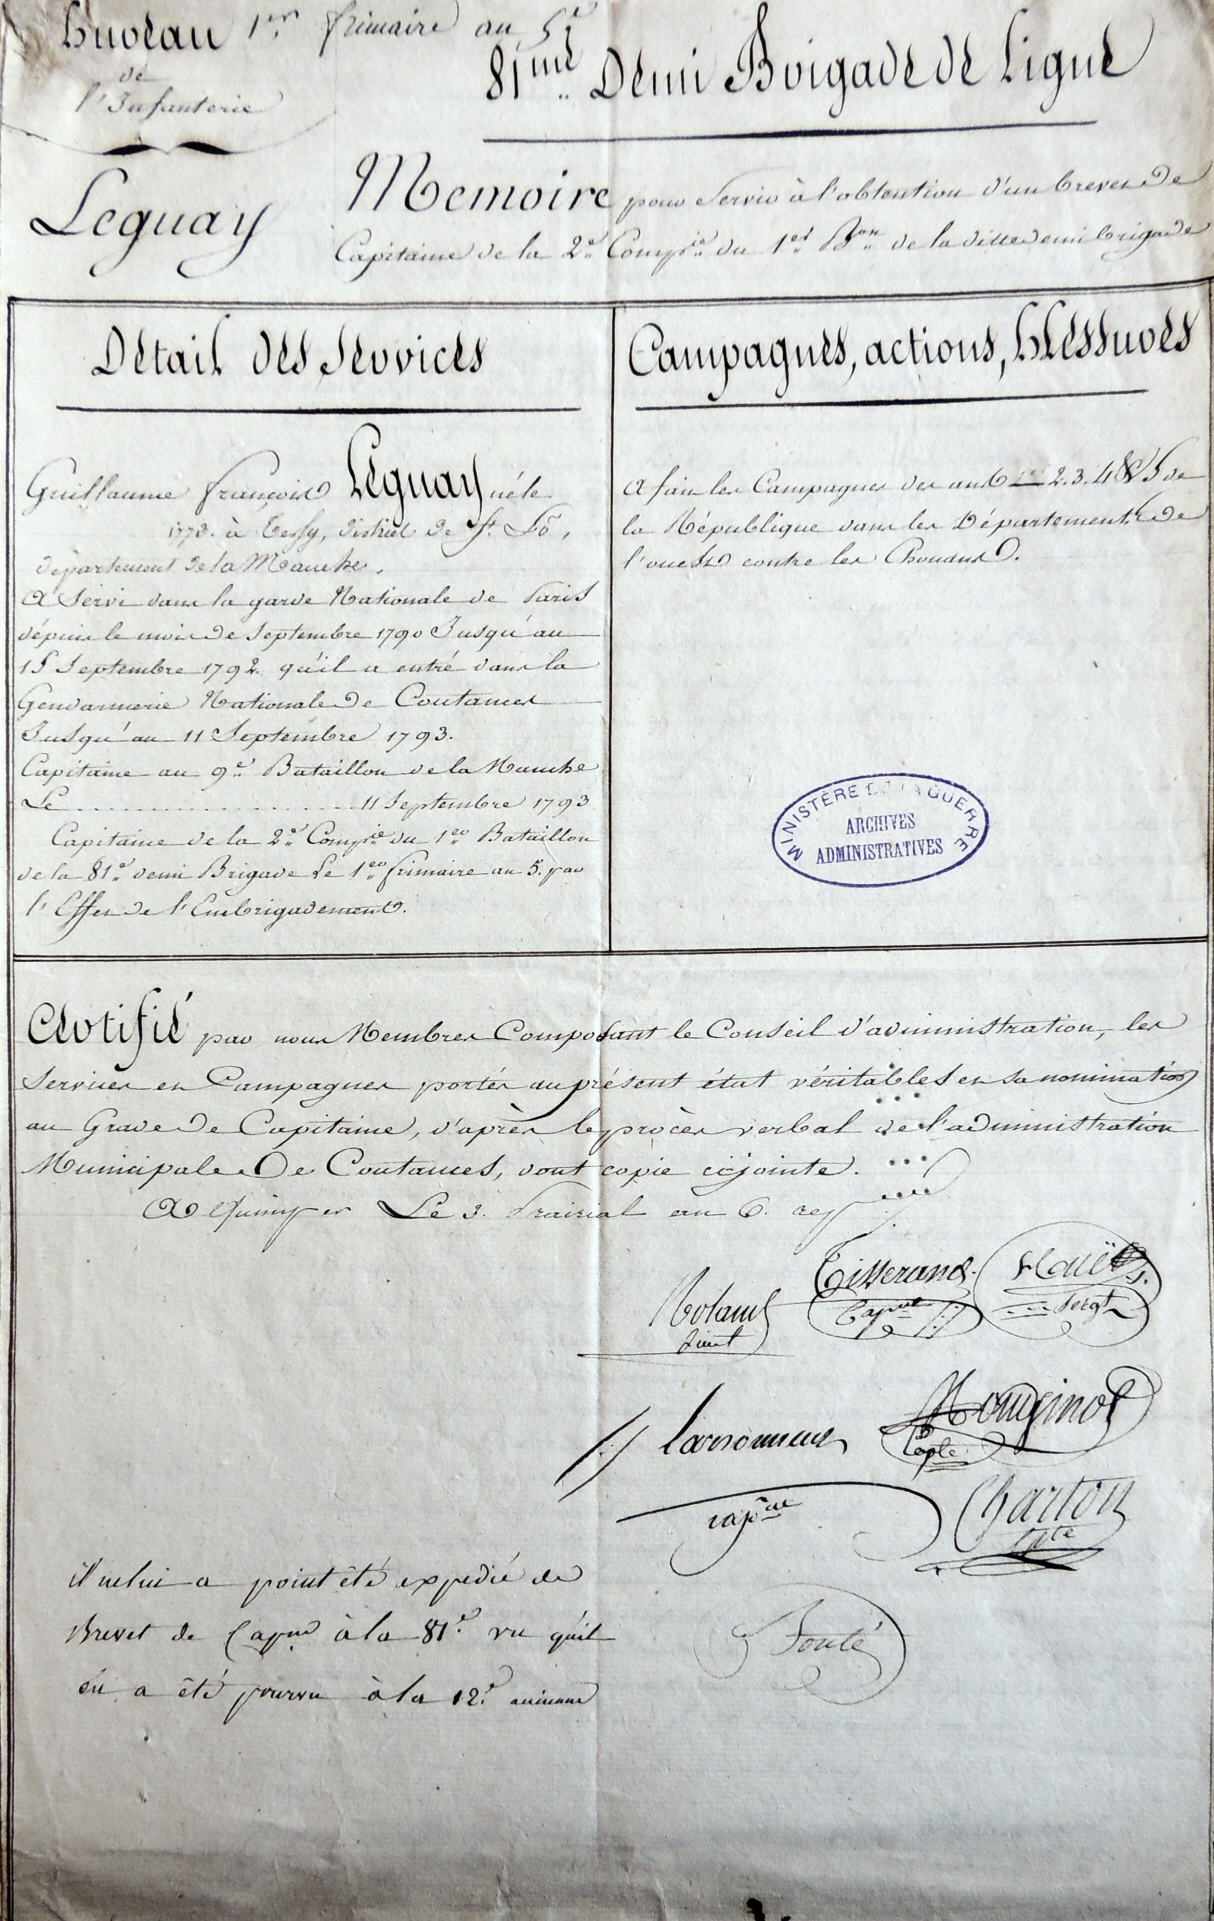 Bureau 1er frimaire an 5e
de
l'Infanterie
81me Demi Brigade de Ligne
Leguay
Memoire pour Servir à l'obtention d'un brevet de
Capitaine de la 2e Compie du 1er Bon de la ditte demi brigade
Détail des Services
Guillaume françois Leguay né le
1773. à Tessy, district de St. Lô,
departement de la Manche.
A Servi dans la garde Nationale de Paris
dépuis le mois de Septembre 1790 Jusqu'au
15 Septembre 1792. qu'il a entré dans la
Gendarmerie Nationale de Coutances
Jusqu'au 11 Septembre 1793.
Capitaine au 9e Bataillon de la Manche
Le .................... 11 Septembre 1793
Capitaine de la 2e Compie du 1er Bataillon
de la 81e demi Brigade Le 1er frimaire an 5. par
l'Effet de l'Embrigadement.
Campagnes, actions, blessures
A fait les Campagnes des ans 2. 3. 4 & 5 de
la République dans les Départements de
l'ouest contre les Chouans.
MINISTÈRE DE LA GUERRE
ARCHIVES
ADMINISTRATIVES
Certifié par nous Membres Composant le Conseil d'administration, les
Services et Campagnes portés au présent état véritables et sa nomination
au Grade de Capitaine, d'après le procès verbal de l'administration
Municipale De Coutances, dont copie cijointe.
A Quimper Le 3. Prairial an 6. rep
Tisserand Houël
Roland Capne Sergt
Lieut
Mouginot
Larsonneur Caple
Charton
capne Cpte
il ne lui a point été expedié de
Brevet de Capne à la 81e vu qu'il
Fouté
en a été pourvu à la 12e